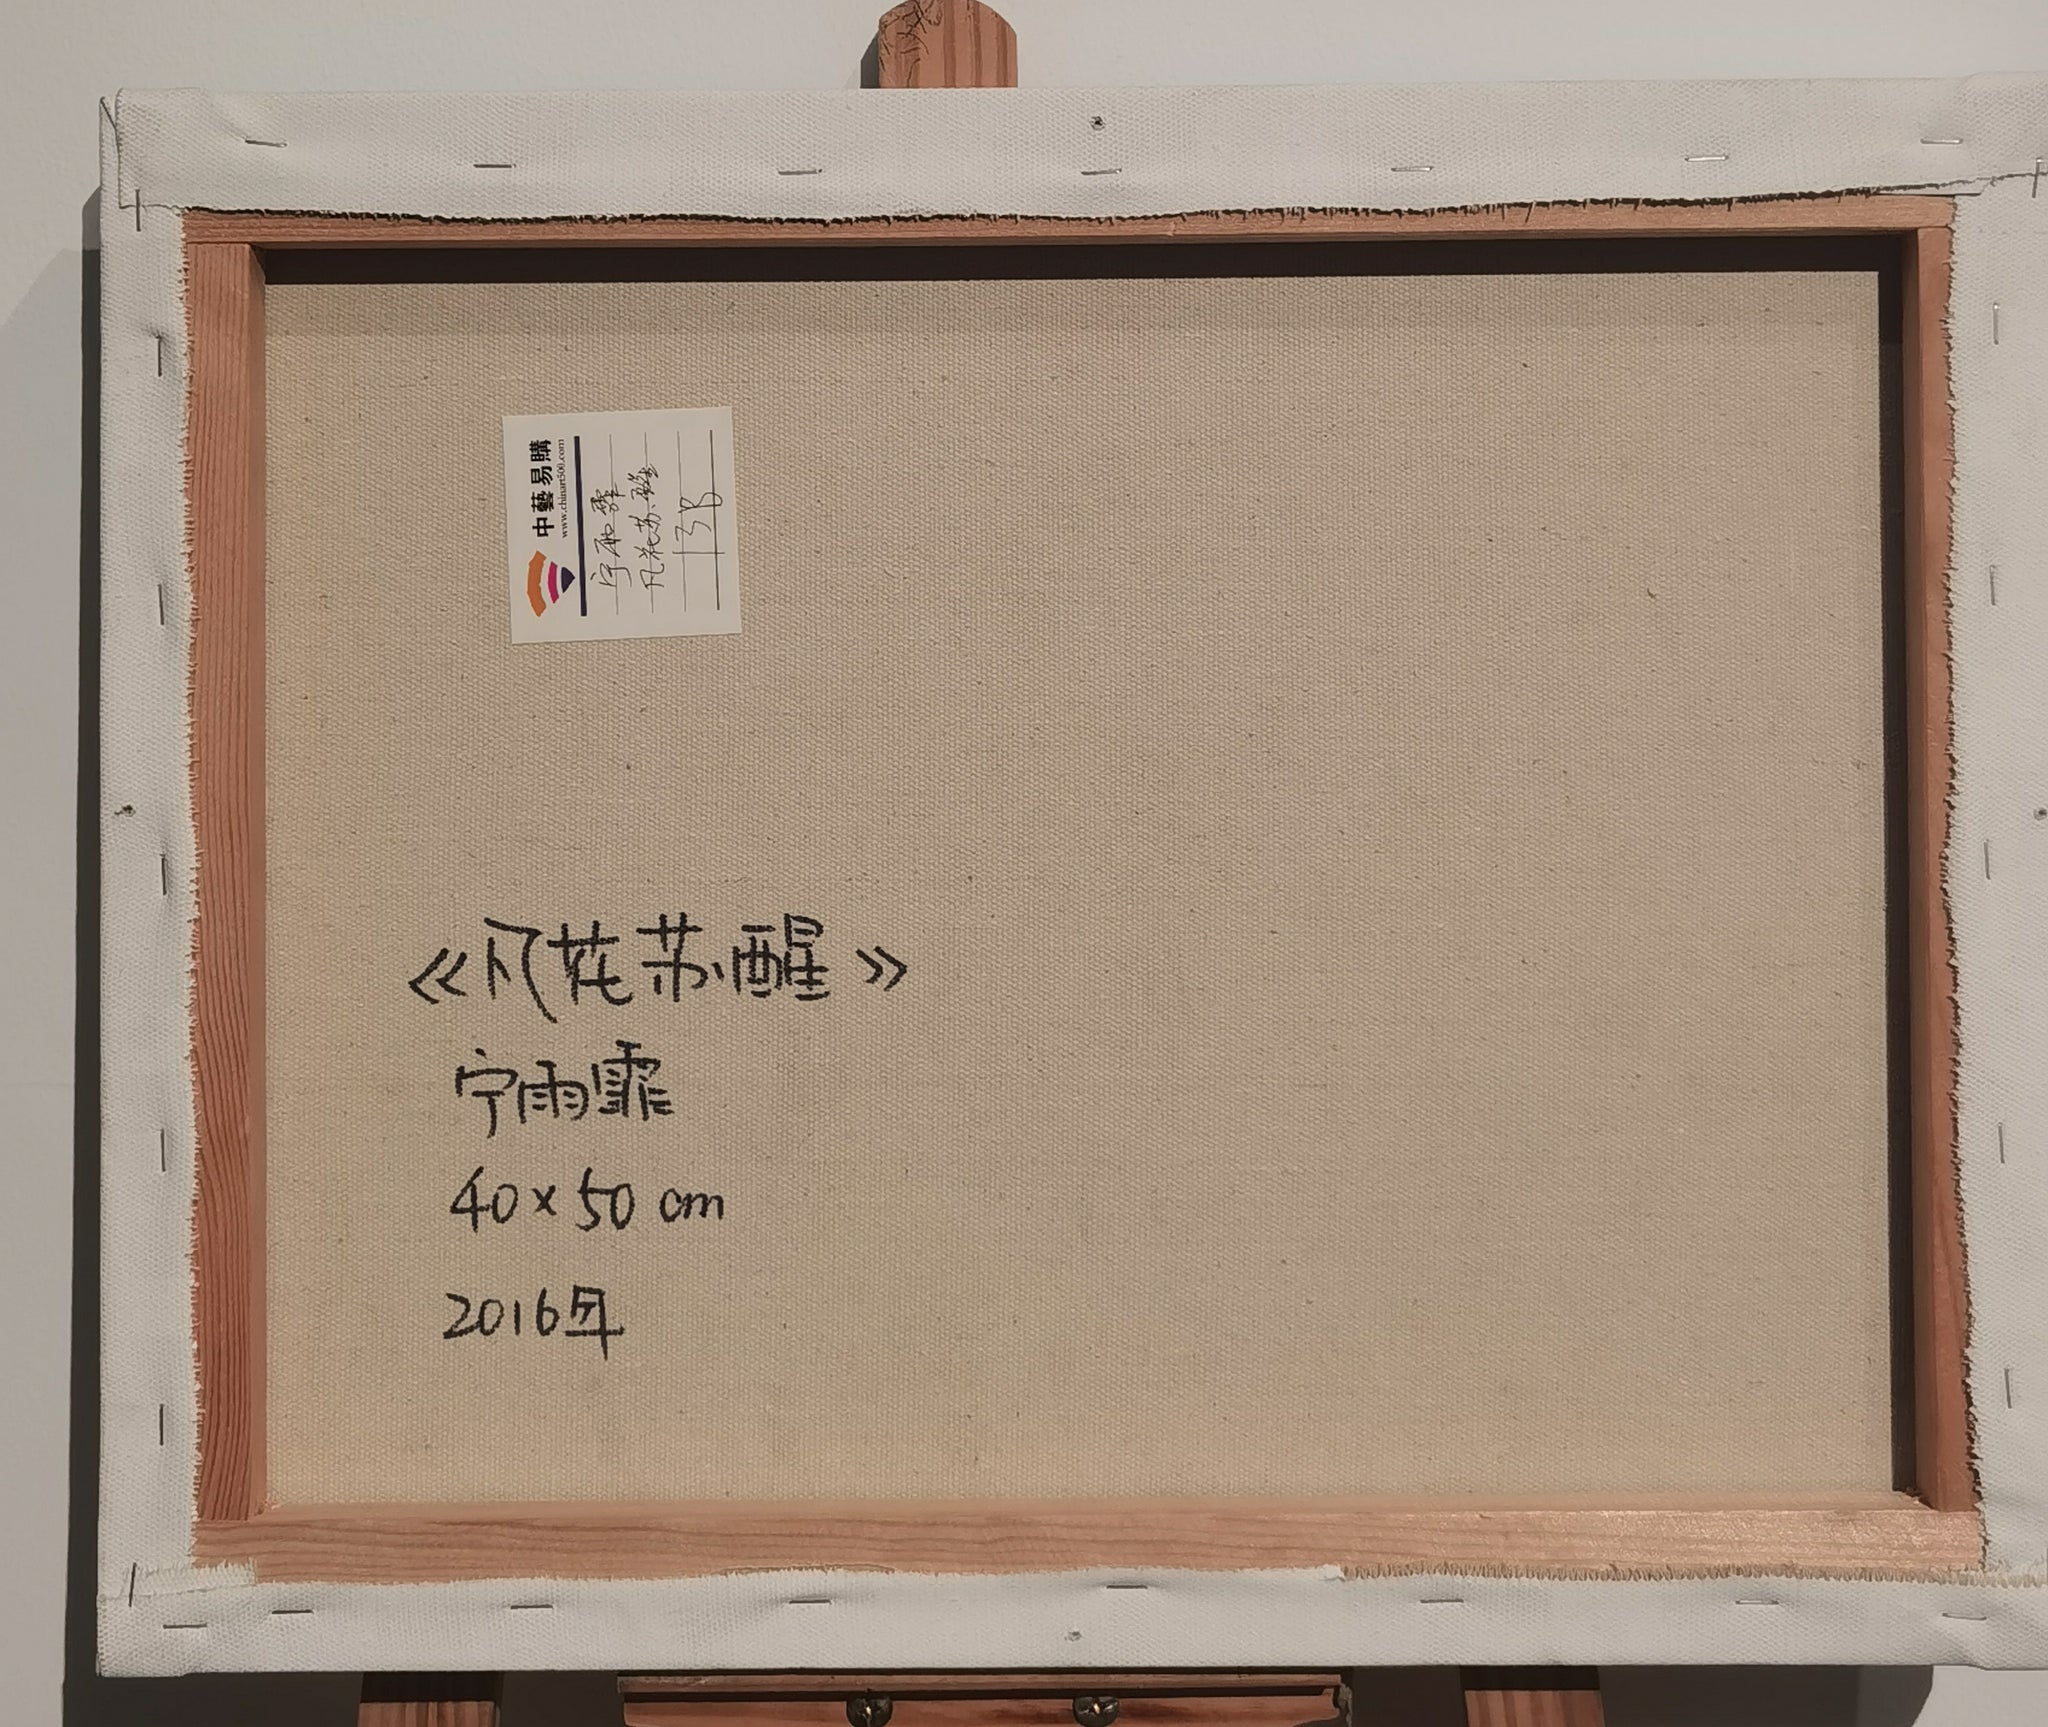 中藝易購
www.chinart500.com
宁雨霏
凡花苏醒
138
《凡花苏醒》
宁雨霏
40×50 cm
2016年